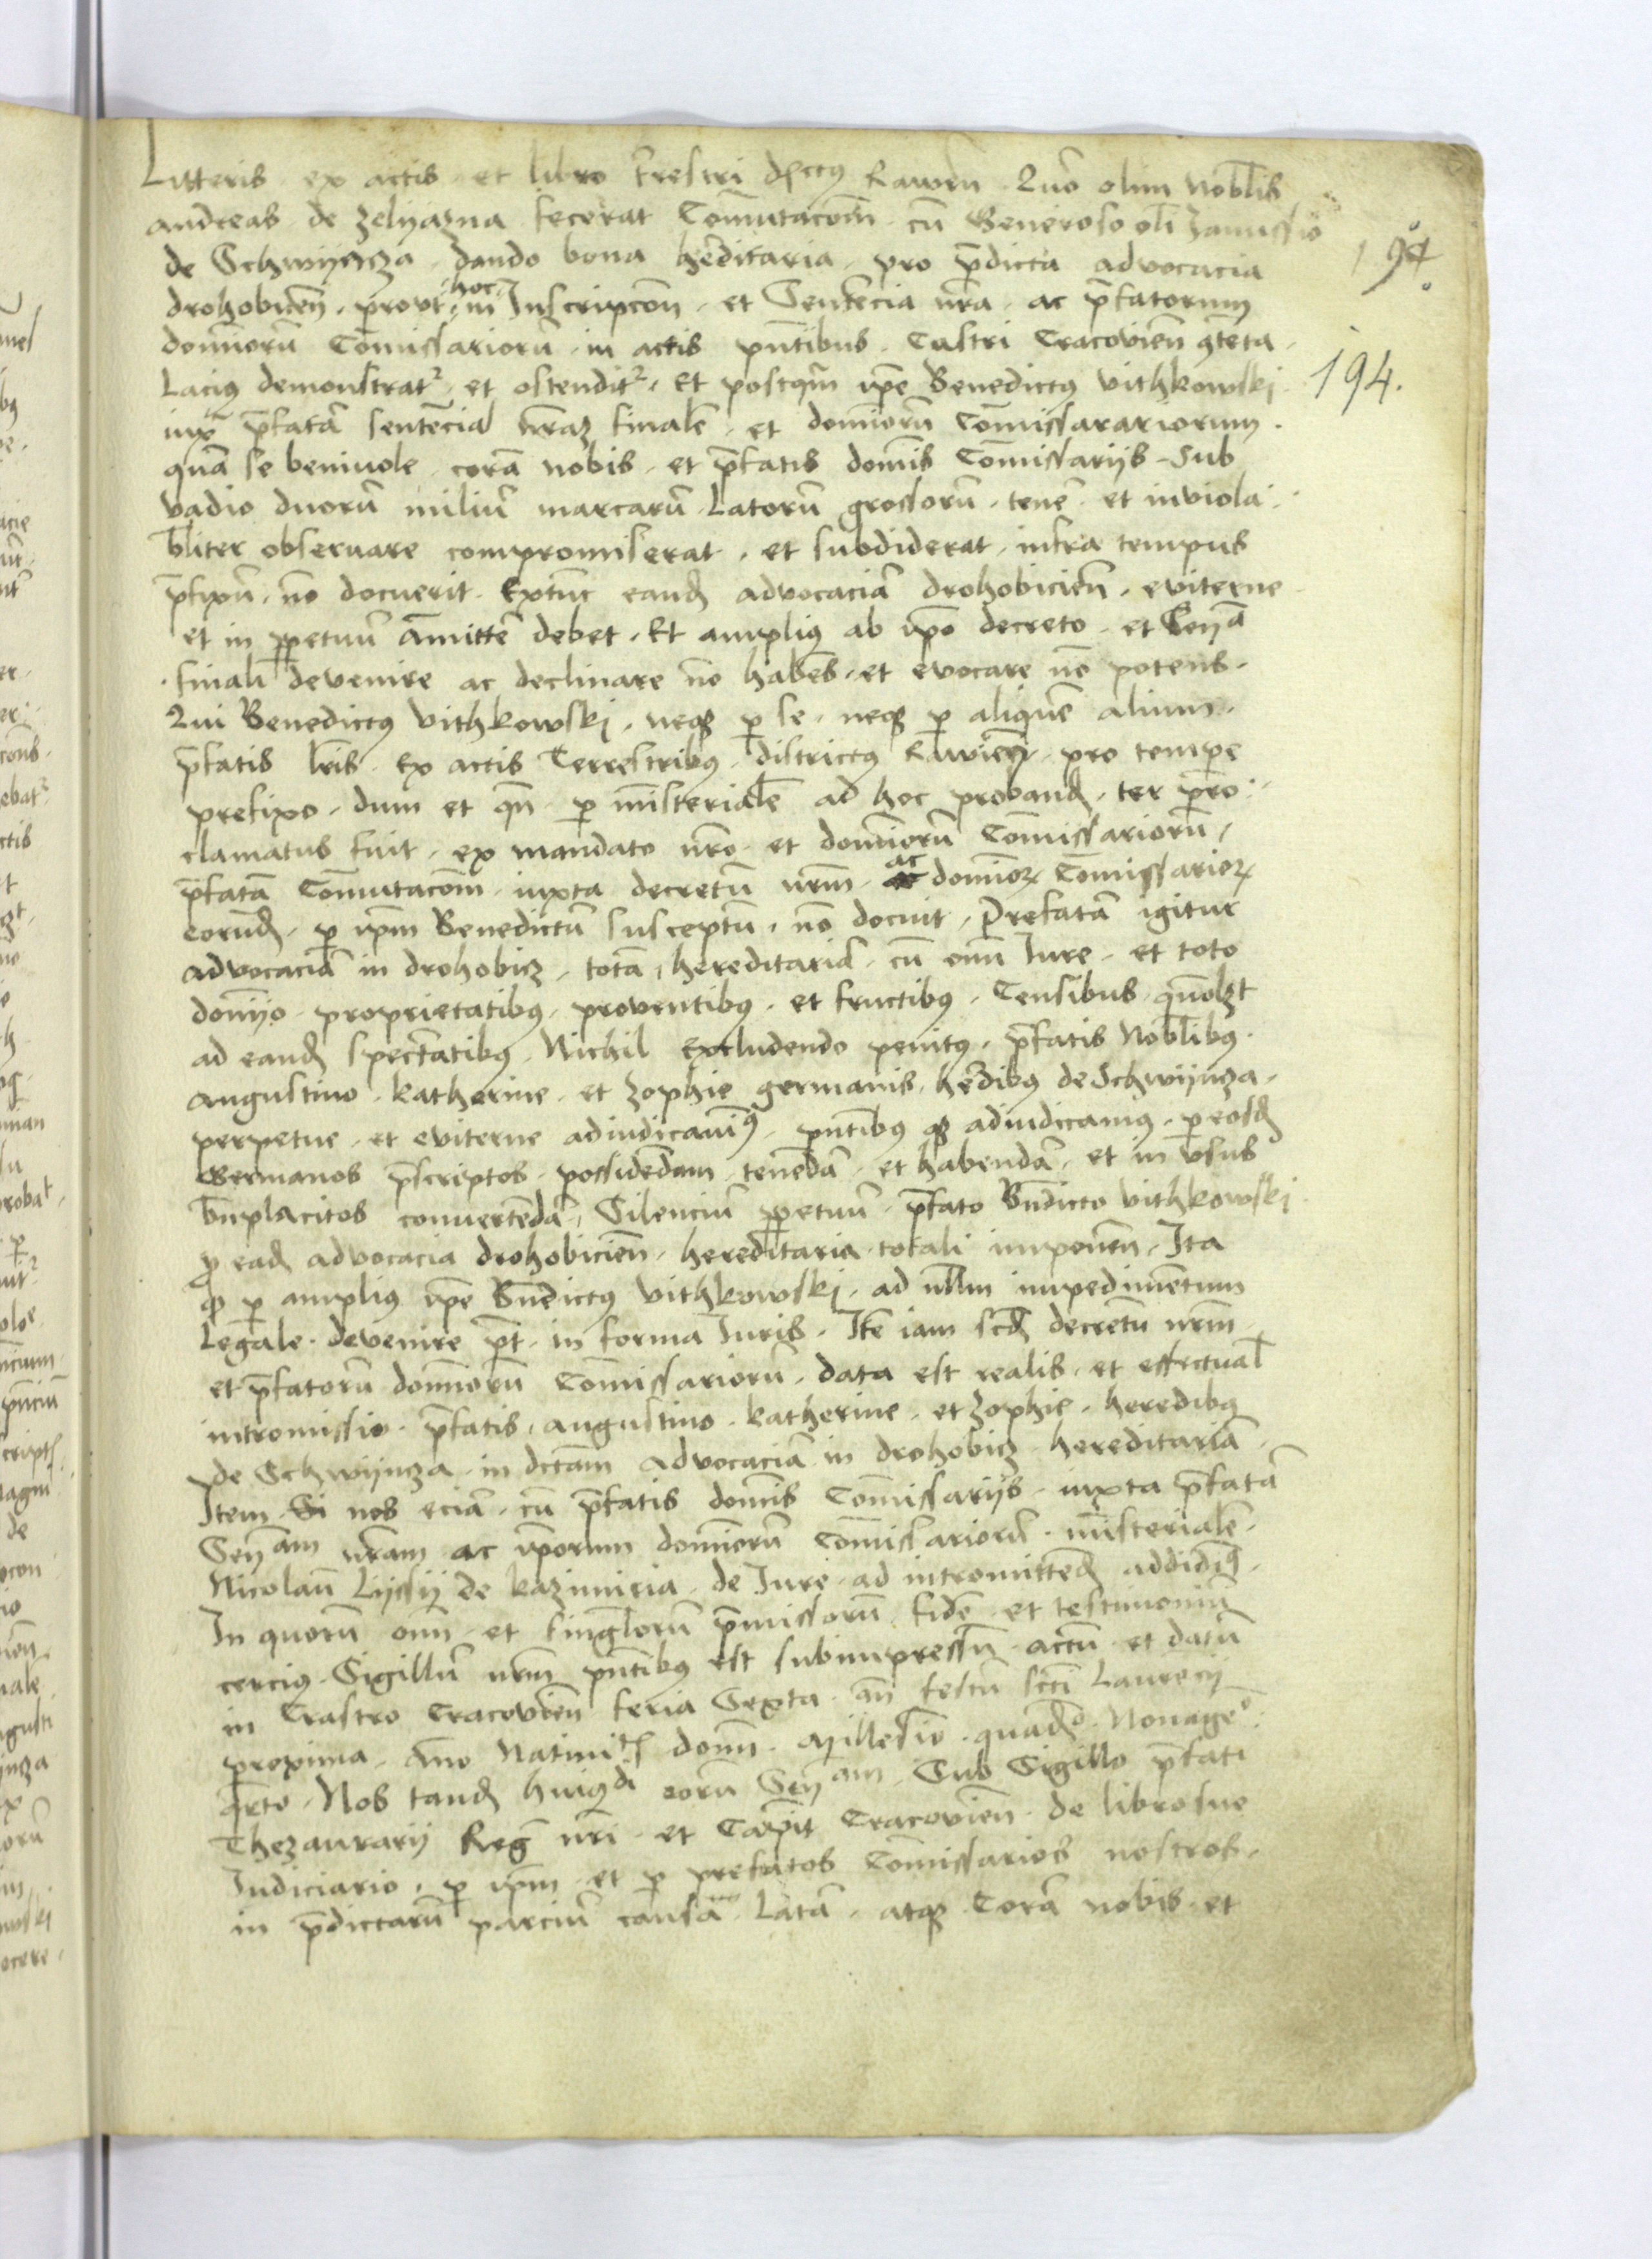 Litteris ex actis et libro trestri dsctus Rawen Quo olim Nobilis
andreas de zelyazna fecerat Comutacom cu Generoso oli Janussio
de Schwijnza Dando bona hereditaria pro pdicta advocacia 194
drohobicen prout hoc in Inscripcon et Sentencia nra ac pfatorum
domnoru Comissarioru in actis pntibus Castri Cracovien contenta
Lacius demonstrat et ostendit Et postqm ipse Benedictus vithkowski 194.
iux pfata sentencia nraz finale et dominoru Comissarariorum
qua se benivole cora nobis et pfatis domis Comissarijs Sub
vadio duoru miliu marcaru Latoru grossoru tene et inviola
bliter observare compromiserat et subdiderat infra tempus
pfixu no docuerit Extunc eand advocacia drohobicien eviterne
et in ppetuu Amitte debet Et amplius ab ipo decreto et Senna
finali devenire ac declinare no habes et evocare no potens
Qui Benedictus vithkowski neq p se neq p alique alium
pfatis lris Ex actis Terrestribus districtus Rawien pro tempe
prefixo dum et qn p misteriale ad hoc proband ter pro
clamatus fuit ex mandato nro et dominoru Comissarioru
pfata Comutacom iuxta decretu nrm ac dominor Comissarior
eorund p ipm Benedictu susceptu no docuit Prefata igitur
advocacia in drohobicz tota hereditaria cu omi Iure et toto
domijo proprietatibus proventibus et fructibus Censibus quolzt
ad eand spectatibus Nichil Excludendo penitus pfatis Noblibus
augustino katherine et zophie germanis heredibus de Schwijnza
perpetue et eviterne adiudicavimus pntibus q adiudicamus p eosd
Germanos pscriptos possidedam teneda et habenda et in usus
bnplacitos converteda Silenciu ppetuu pfato Bndicto vithkowski
p ead advocacia drohobicien hereditaria totali imponen Ita
q p amplius ipe Bndictus vithkowski ad ullm impedimentum
Legale devenire pt in forma Iuris Ite iam scd decretu nrm
et pfatoru domnoru Comissarioru data est realis et effectual
intromissio pfatis augustino katherine et zophie heredibus
de Schwijnza in dctam advocacia in drohobicz hereditaria
Item nos ecia cu pfatis domis Comissarijs iuxta pfata
Senn am nram ac ipsorum domnoru Comissarioru misteriale
Nicolau Lijssij de kazimiria de Iure ad intromitted addidimus
In quoru omn et singloru pmissoru fide et testimoniu
cercius Sigillu nrm pntibus est subimpressu actu et datu
in Castro Cracovien feria Sexta an festu scti Laurecij
proxima Ano Nativitatis domi Millesio quadro Nonage
qrto Nos tand huiusdi eoru Senn am Sub Sigillo pfati
Thezaurarij Reg nri et Capit Cracovien de libro sue
Iudiciario p ipm et p prefatos Comissarios nostros
in pdictaru parciu causa Lata atq Cora nobis et